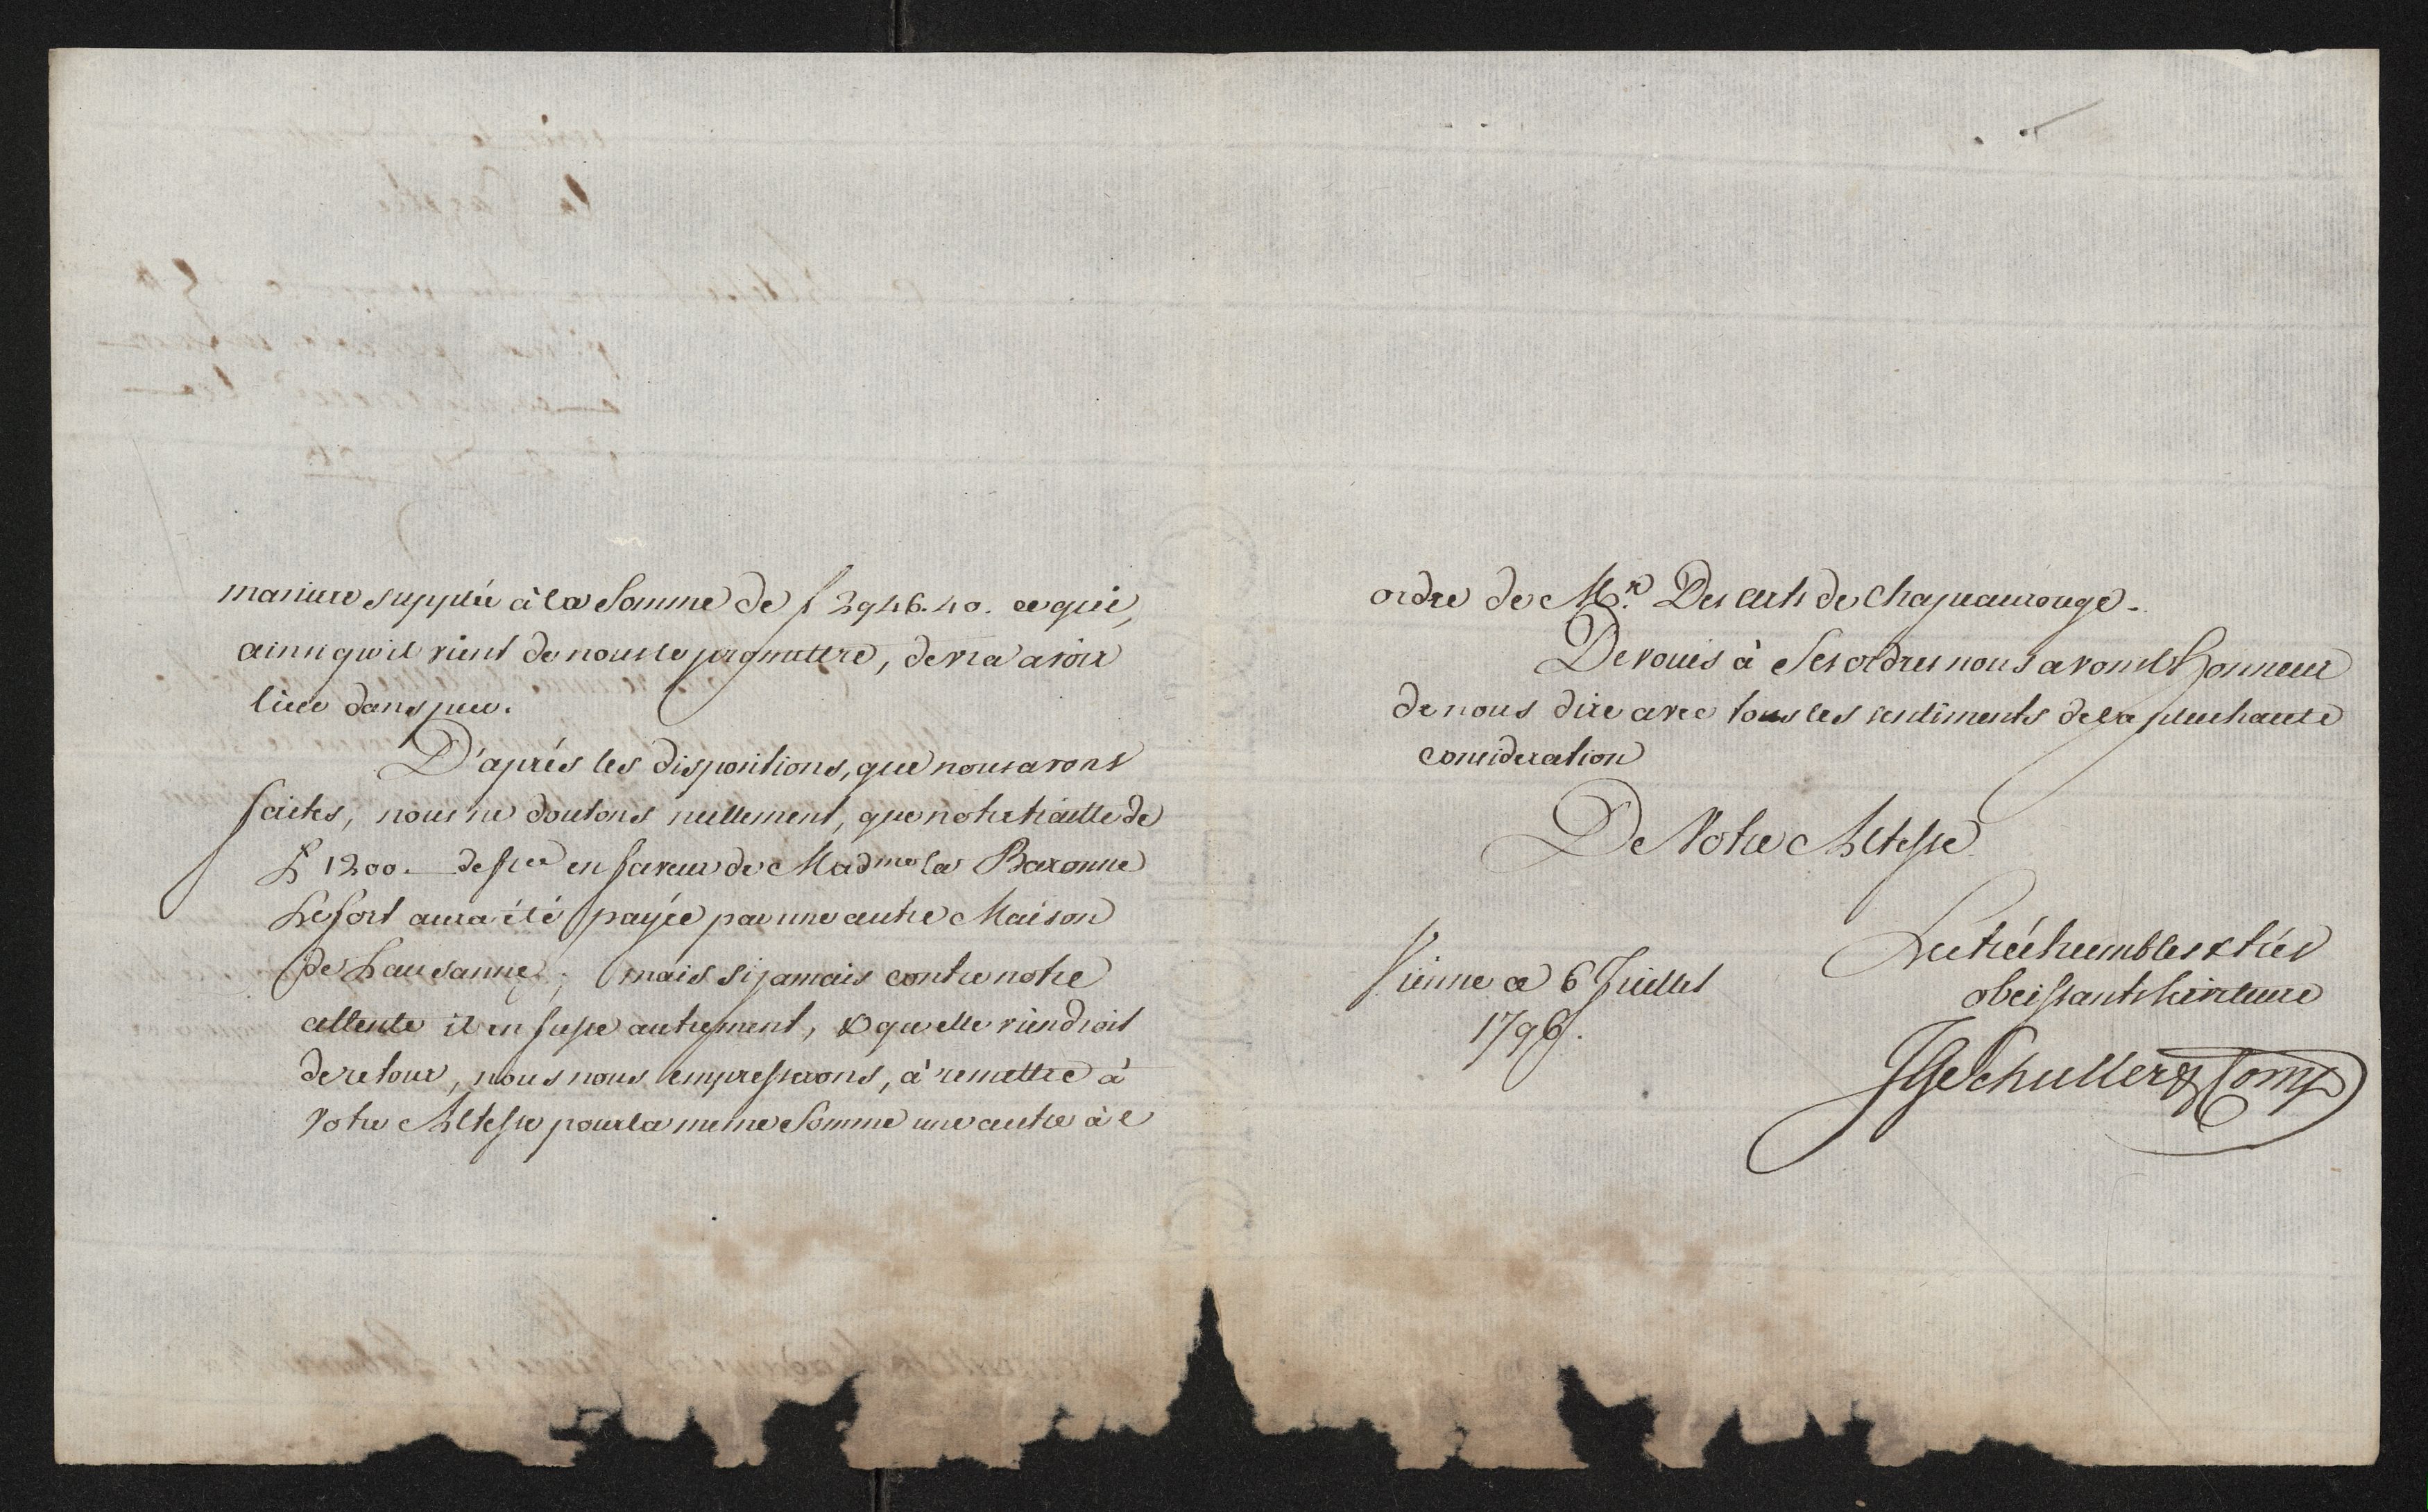 maniere suppléé à la Somme de f 2946.40. ce qui,
ainsi qu'il vient de nous le promettre, devra avoir
lieu dans peu.
D'aprés les dispositions, que nous avons
faites, nous ne doutons nullement, que notre traitte de
L 1200.— de fce en faveur de Madme la Baronne
Lefort aura été payée par une autre Maison
de Lausanne; mais si jamais contre notre
attente il en fusse autrement, & qu'elle viendroit
de retour, nous nous empresserons, à remettre à
Votre Altesse pour la meme Somme une autre à l
ordre de Mr. Des arts de Chapeaurouge.
Devoués à Ses ordres nous avons l'honneur
de nous dire avec tous les sentiments de la plus haute
consideration
De Votre Altesse
Les trés humbles & trés
obeissants Serviteurs
Vienne ce 6 Juillet
1796.
JG Schuller & Comp